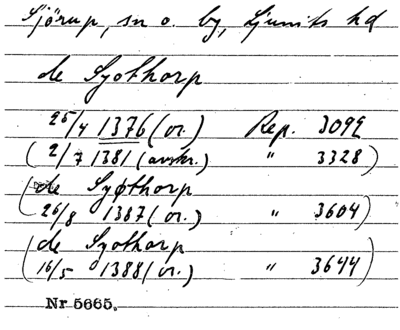 Sjörup, sn o. by, Ljunits hd
de Syothorp
25/4 1376 (or.) Rep. 3092
(2/7 1381 (avskr.) " 3328)
(de Syøthorp
26/8 1387 (or.) " 3604)
(de Syothorp
16/5 1388 (or.) " 3644)
Nr 5665.